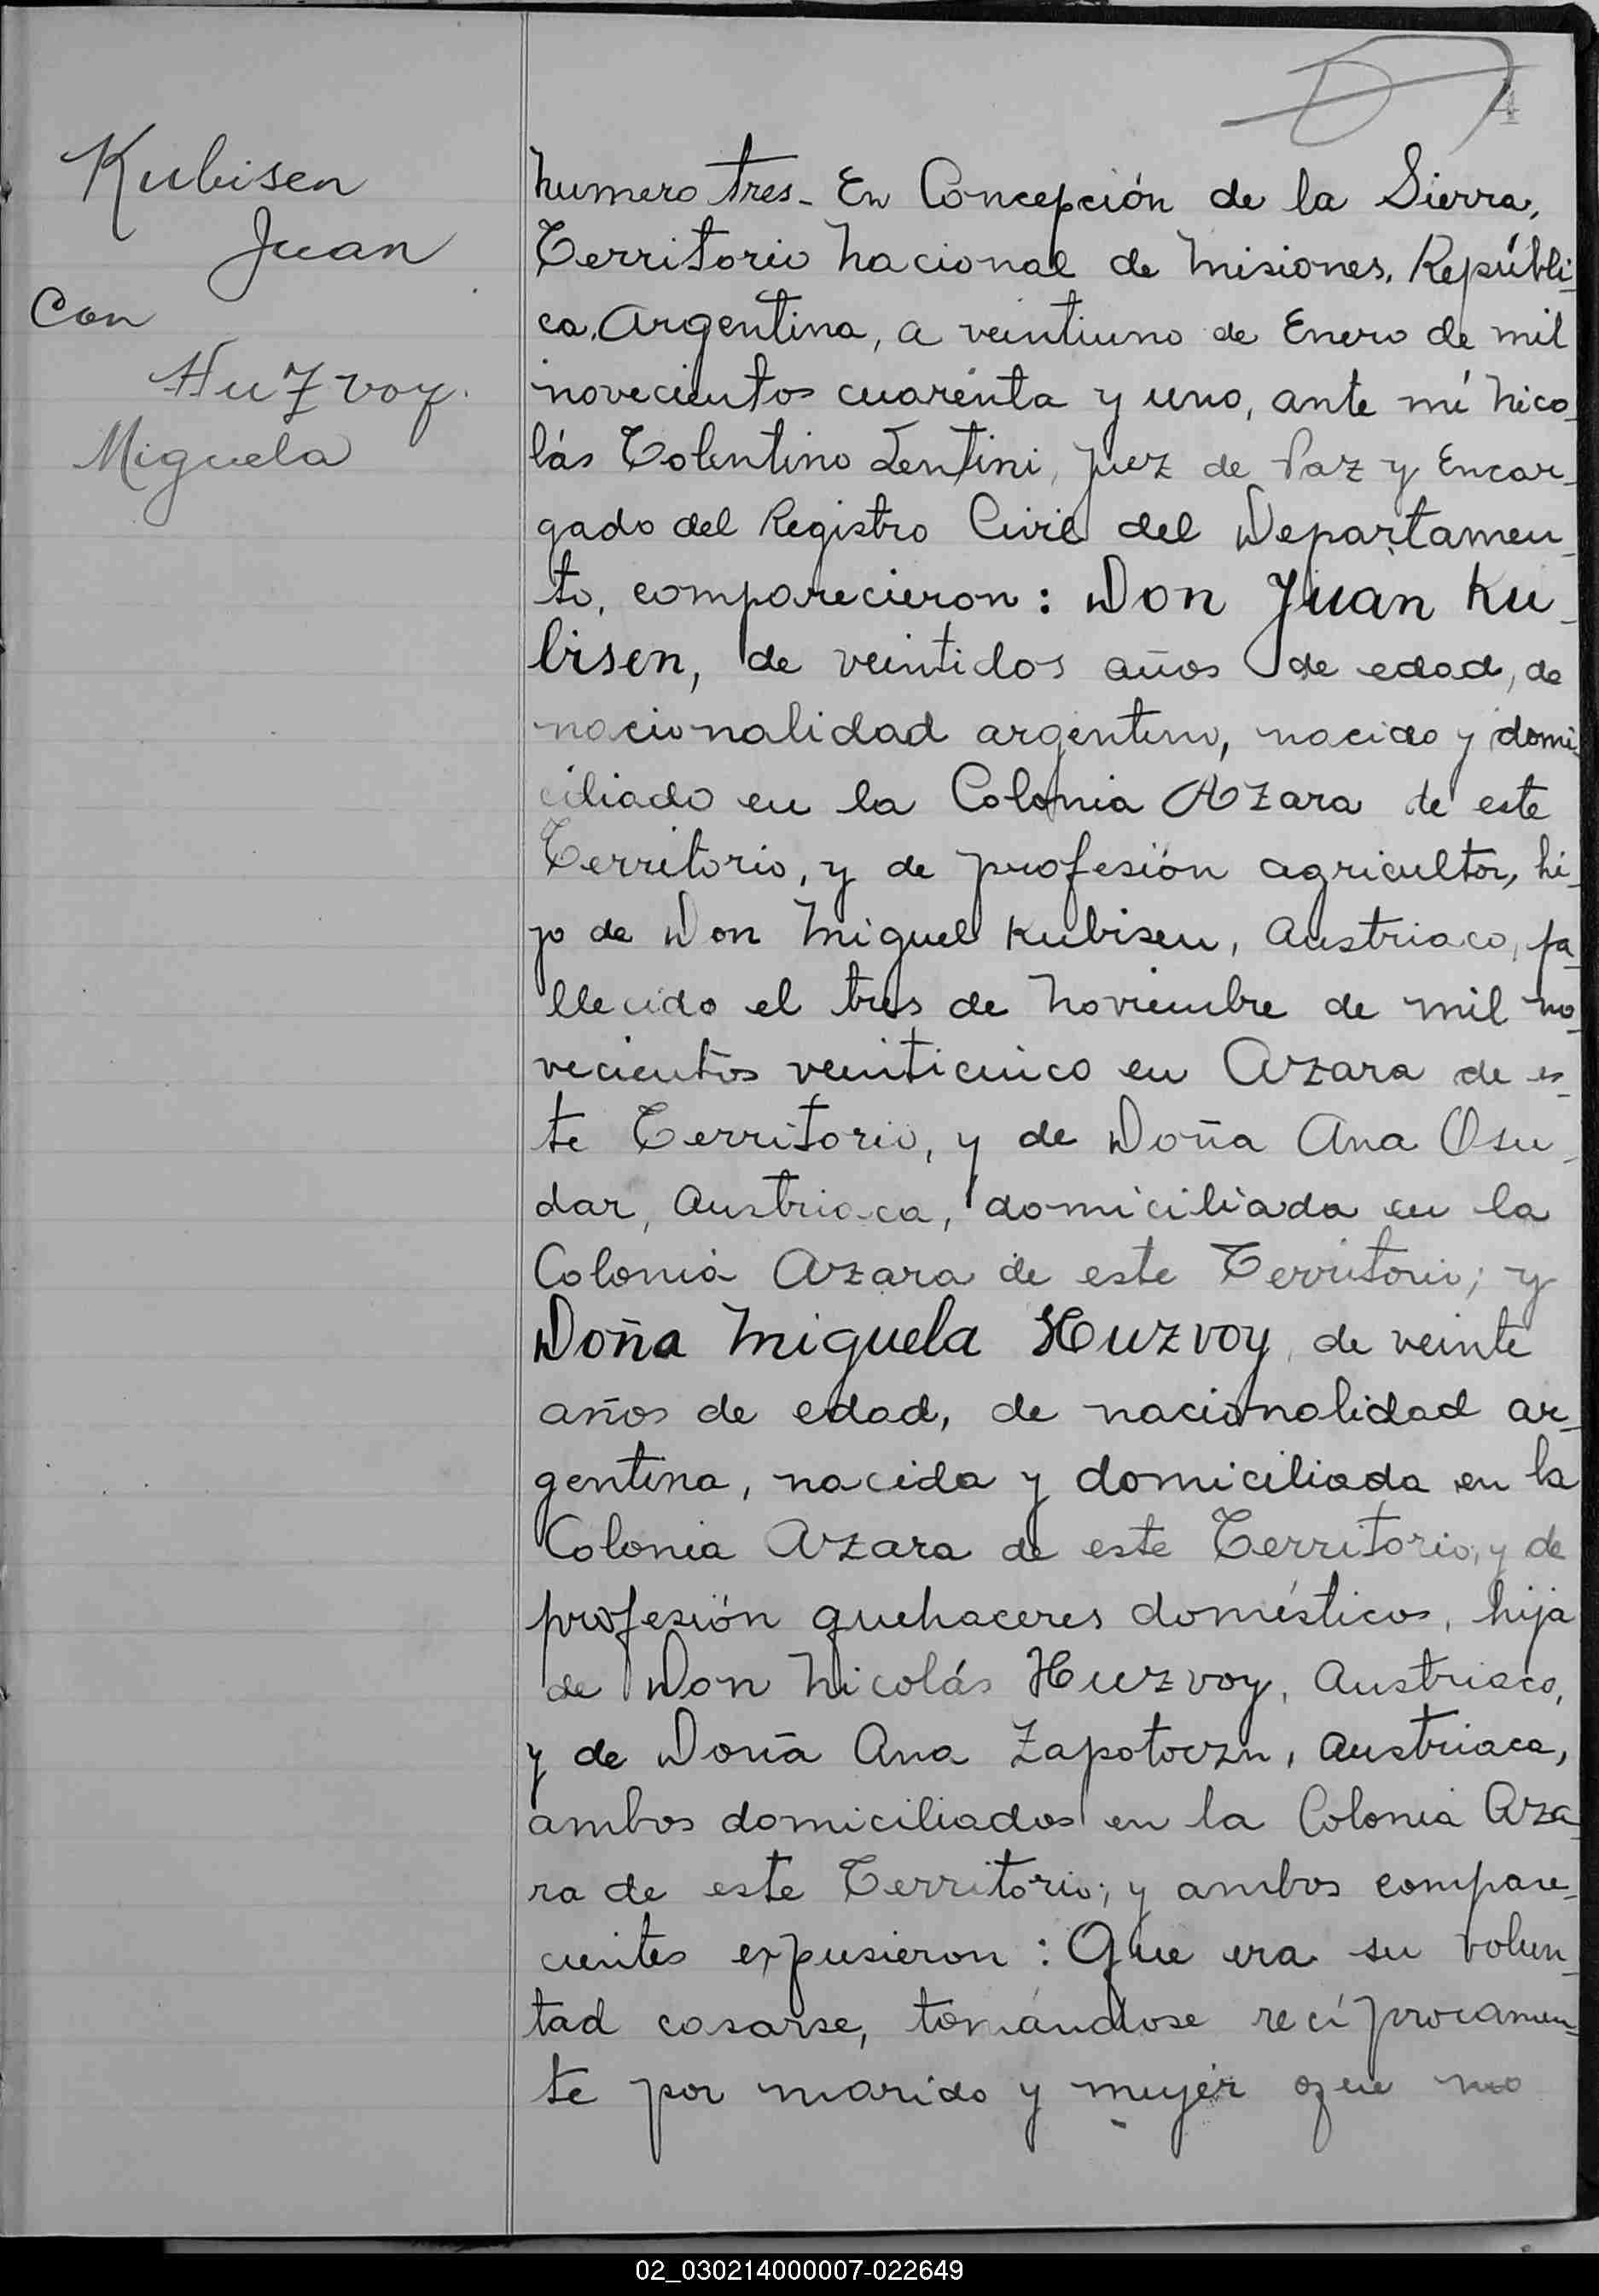 4
Kubisen
Juan
Con
Huzvoy.
Miguela
Número tres- En Concepción de la Sierra,
Territorio Nacional de Misiones, Repúbli-
ca Argentina, a veintiuno de Enero de mil
novecientos cuarenta y uno, ante mí Nico-
lás Tolentino Lentini, Juez de Paz y Encar-
gado del Registro Civil del Departamen-
to, comparecieron: Don Juan Ku-
bisen, de veintidos años de edad, de
nacionalidad argentino, nacido y domi-
ciliado en la Colonia Azara de este
Territorio, y de profesión agricultor, hi-
jo de Don Miguel Kubisen, Austriaco, fa-
llecido el tres de Noviembre de mil no-
vecientos veinticinco en Azara de es-
te Territorio, y de Doña Ana Osu-
dar, Austriaca, domiciliada en la
Colonia Azara de este Territorio; y
Doña Miguela Huzvoy, de veinte
años de edad, de nacionalidad ar-
gentina, nacida y domiciliada en la
Colonia Azara de este Territorio, y de
profesión quehaceres domésticos, hija
de Don Nicolás Huzvoy, Austriaco,
y de Doña Ana Zapotoczn, Austriaca,
ambos domiciliados en la Colonia Aza-
ra de este Territorio; y ambos compare-
cientes expusieron: Que era su volun-
tad casarse, tomándose recíprocamen-
te por marido y mujer que no
02_030214000007-022649